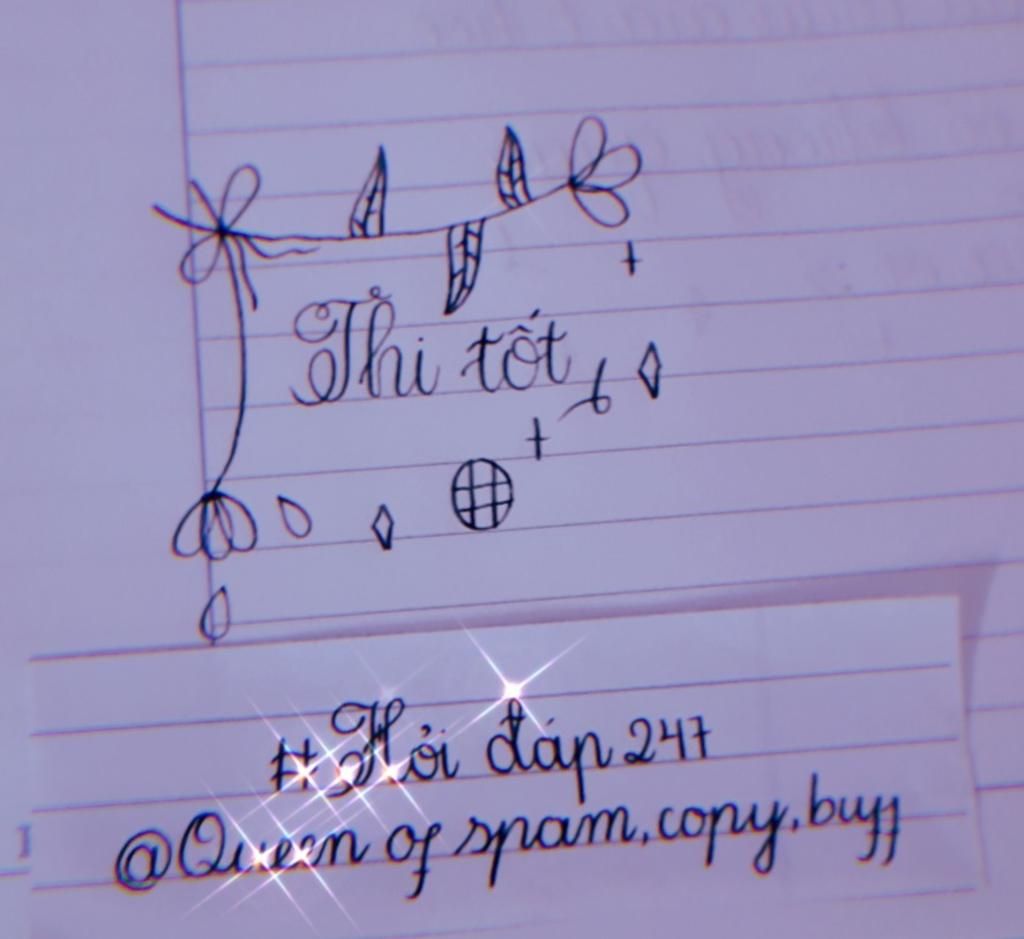 Thi tốt
#Hỏi đáp 247
@Queen of spam, copy, buff